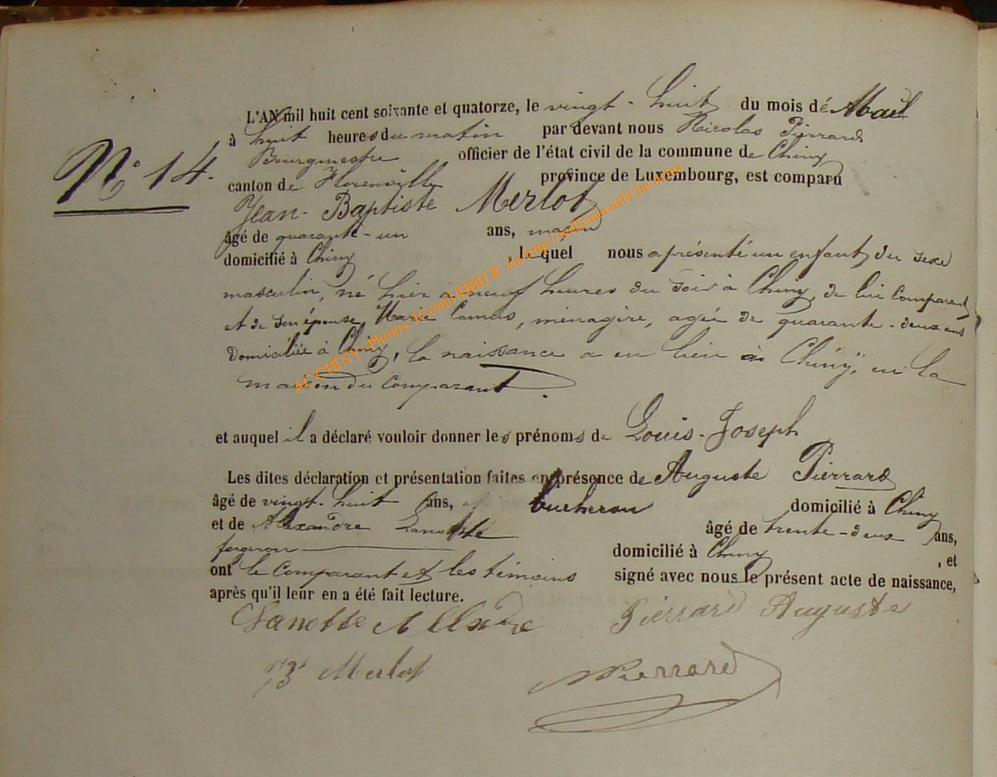 L'AN mil huit cent soixante et quatorze, le vingt-huit du mois de
à huit heures du matin par devant nous Nicolas Pierrard
Bourgmestre officier de l'état civil de la commune de Chiny
N° 14.
canton de Florenville province de Luxembourg, est comparu
Jean-Baptiste Merlot
âgé de quarante-un ans, maçon
domicilié à Chiny, lequel nous a présenté un enfant du sexe
masculin, né hier à neuf heures du soir à Chiny, de lui comparant
et de son épouse, Marie, ménagère, agée de quarante-deux ans
Domiciliée à Chiny, la naissance a eu lieu à Chiny, en la
maison du comparant.
et auquel il a déclaré vouloir donner les prénoms de Louis-Joseph
Les dites déclaration et présentation faites en présence de Auguste Pierrard
âgé de vingt-huit ans, bucheron domicilié à Chiny
et de Alexandre âgé de trente-deux ans,
forgeron domicilié à Chiny, et
ont le comparant et les témoins signé avec nous le présent acte de naissance,
après qu'il leur en a été fait lecture.
Pierrard Auguste
Merlot
NPierrard